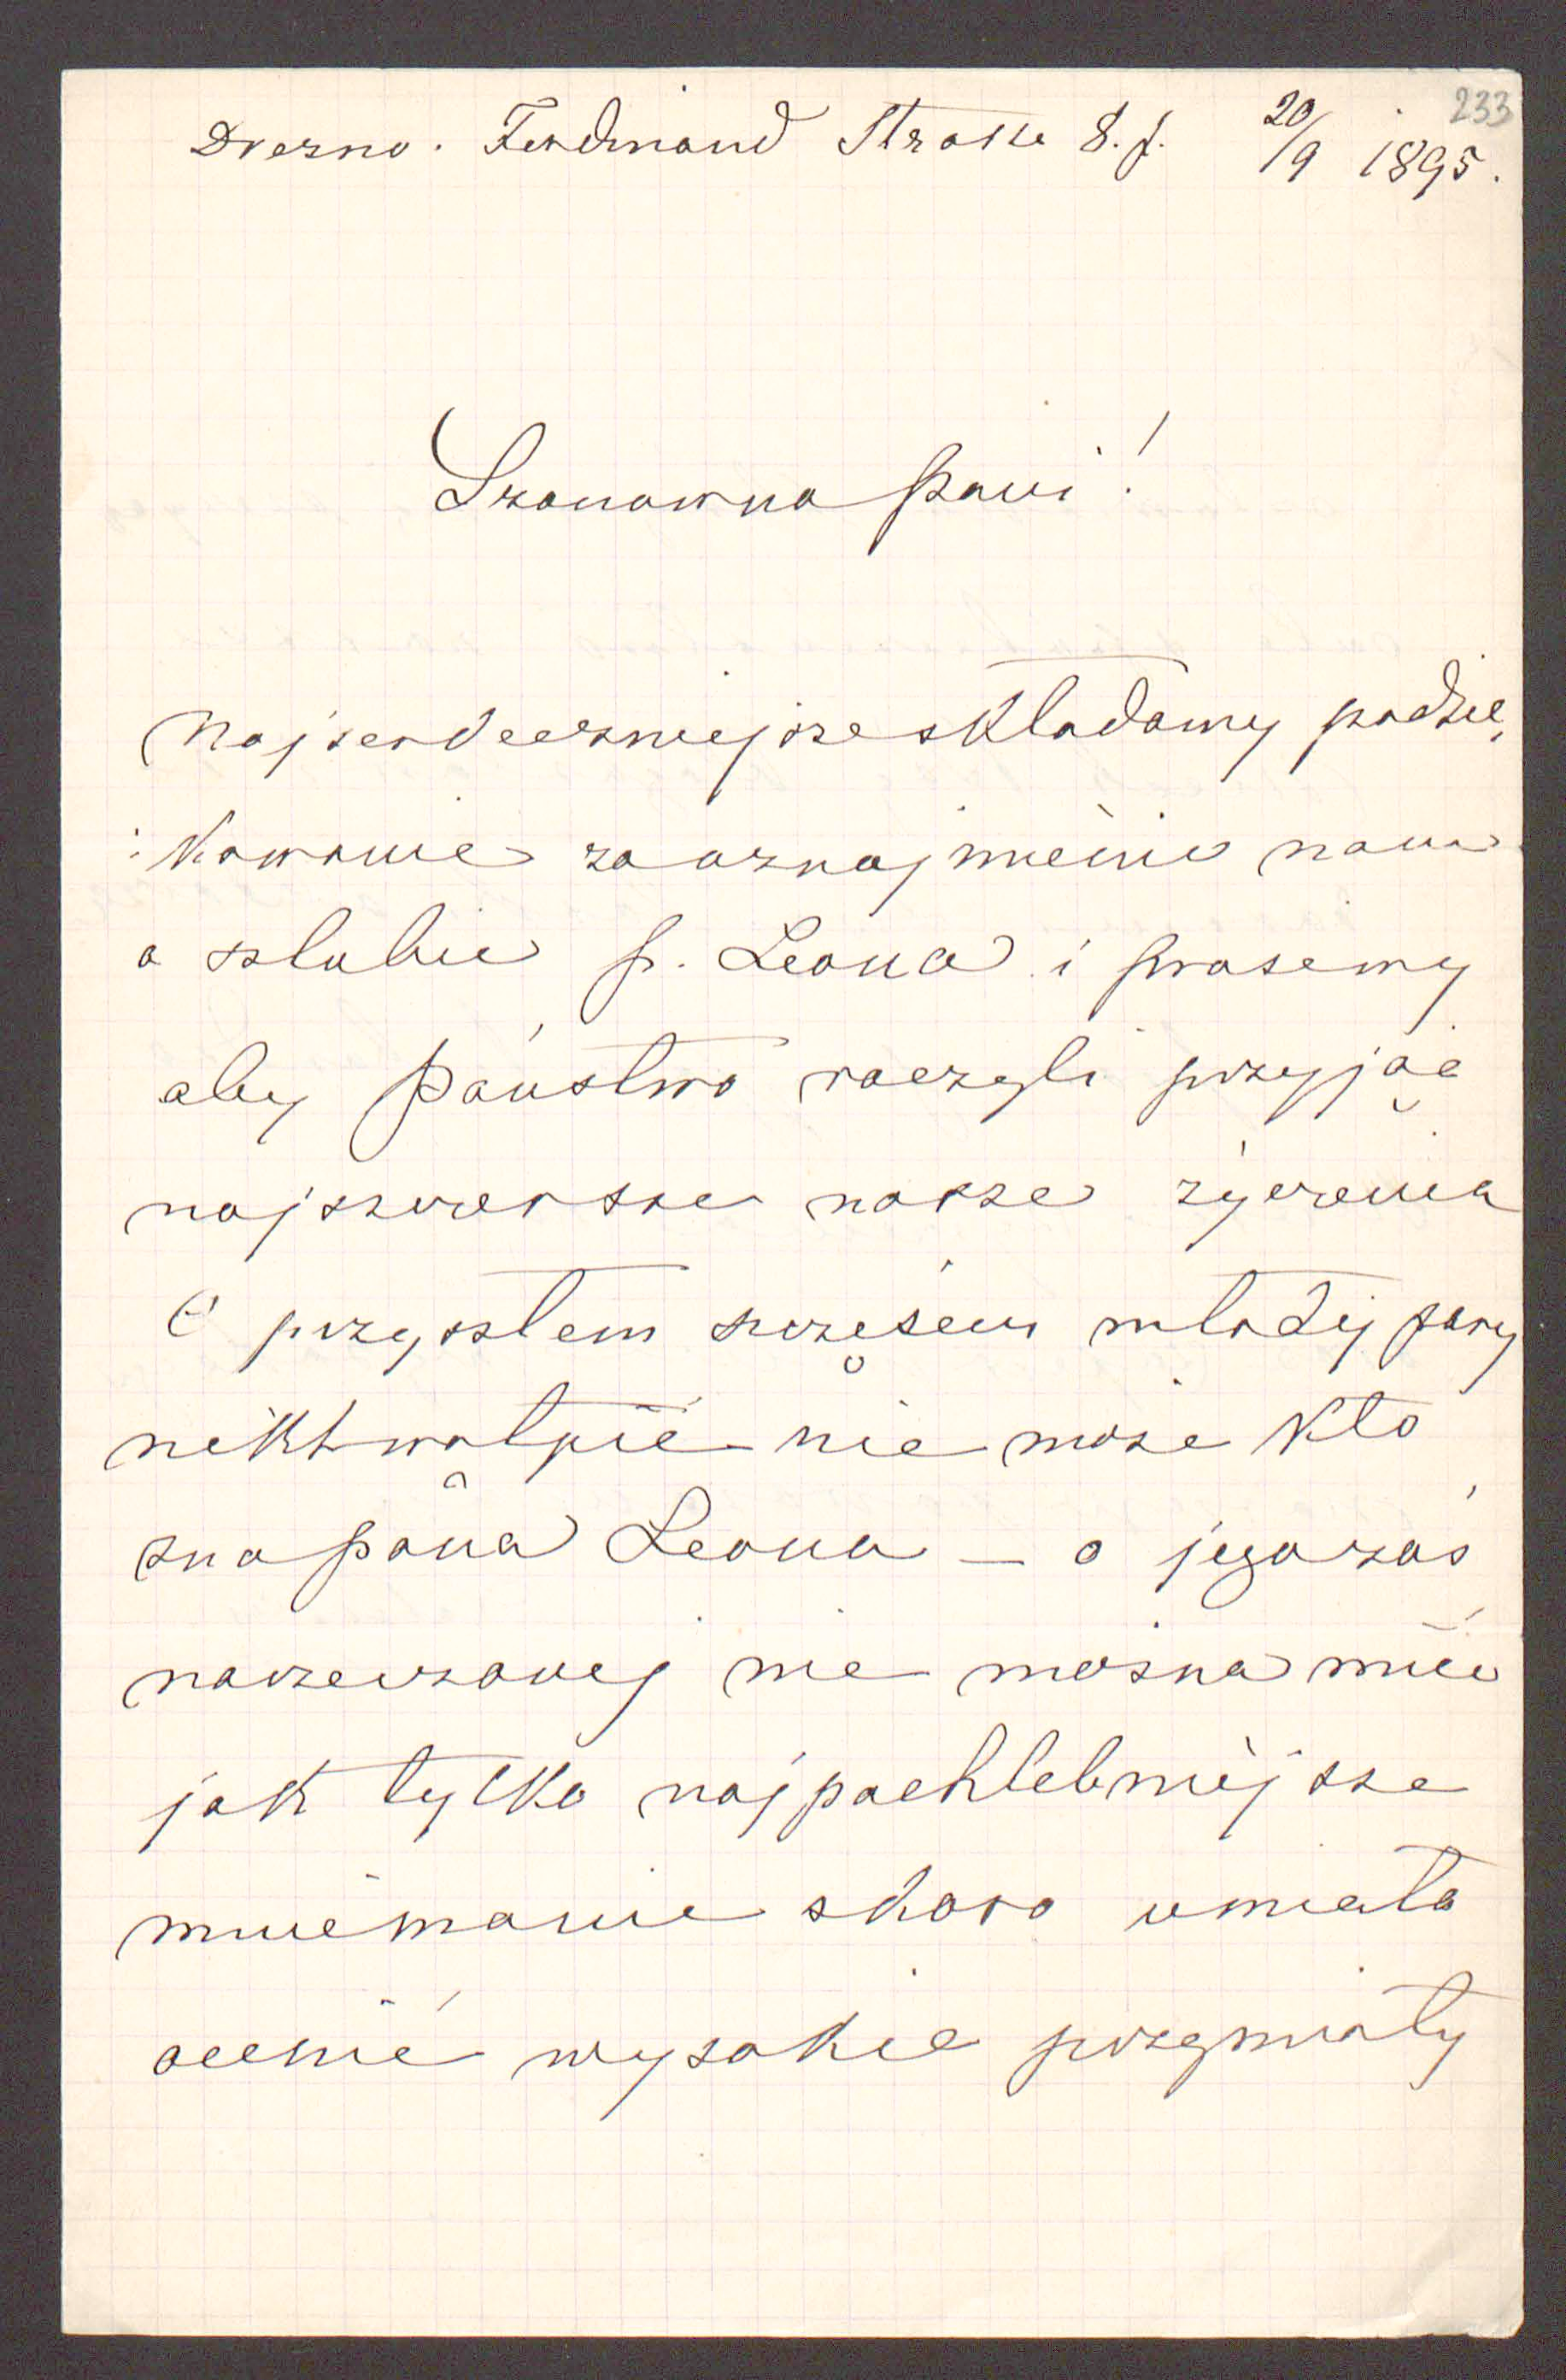 233
Drezno. Ferdinand Strasse 8. I. 20/9 1895.
Szanowna Pani!
Najserdeczniejsze składamy podzię,
:kowanie za oznajmienie nam
o ślubie p. Leona i prosiemy
aby Państwo raczyli przyjąć
najszczersze nasze życzenia
O przyszłem szczęściu młodéj pary
nikt wątpić nie może kto
zna pana Leona — o jego zaś
narzeczonej nie można mieć
jak tylko najpochlebniéjsze
mniemanie skoro umiała
ocenić wysokie przymioty